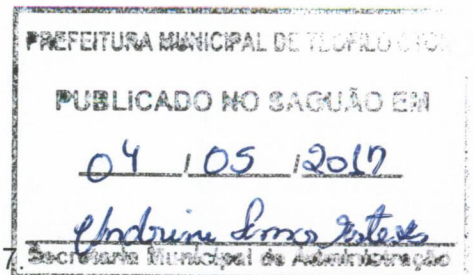 PREFEITURA MUNICIPAL DE TEOFILO OTONI
PUBLICADO NO SAGUÃO EM
04 / 05 / 2017
7. Secretaria Municipal de Administração